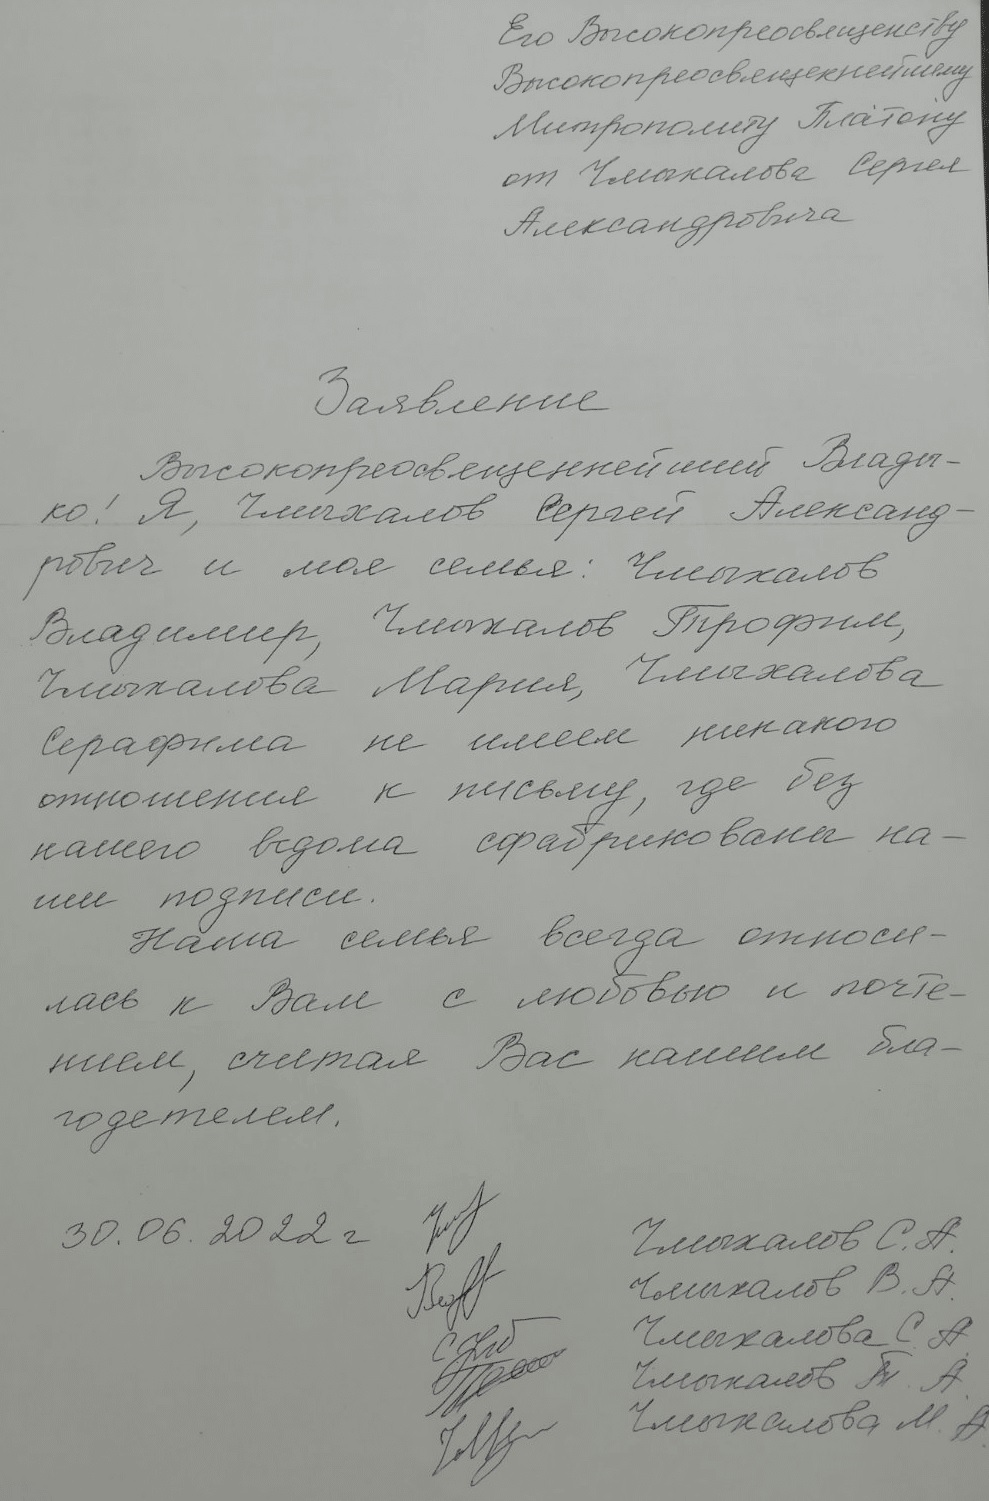 Его Высокопреосвященству
Высокопреосвященнейшему
Митрополиту Платону
от Чмыхалова Сергея
Александровича
Заявление
Высокопреосвященнейший Влады-
ко! Я, Чмыхалов Сергей Александ-
рович и моя семья: Чмыхалов
Владимир, Чмыхалов Трофим,
Чмыхалова Мария, Чмыхалова
Серафима не имеем никакого
отношения к письму, где без
нашего ведома сфабрикованы на-
ши подписи.
Наша семья всегда относи-
лась к Вам с любовью и почте-
нием, считая Вас нашим бла-
годетелем.
30.06.2022 г
Чмыхалов С.А.
Чмыхалов В.А.
Чмыхалова С.А.
Чмыхалов Т.А.
Чмыхалова М.А.